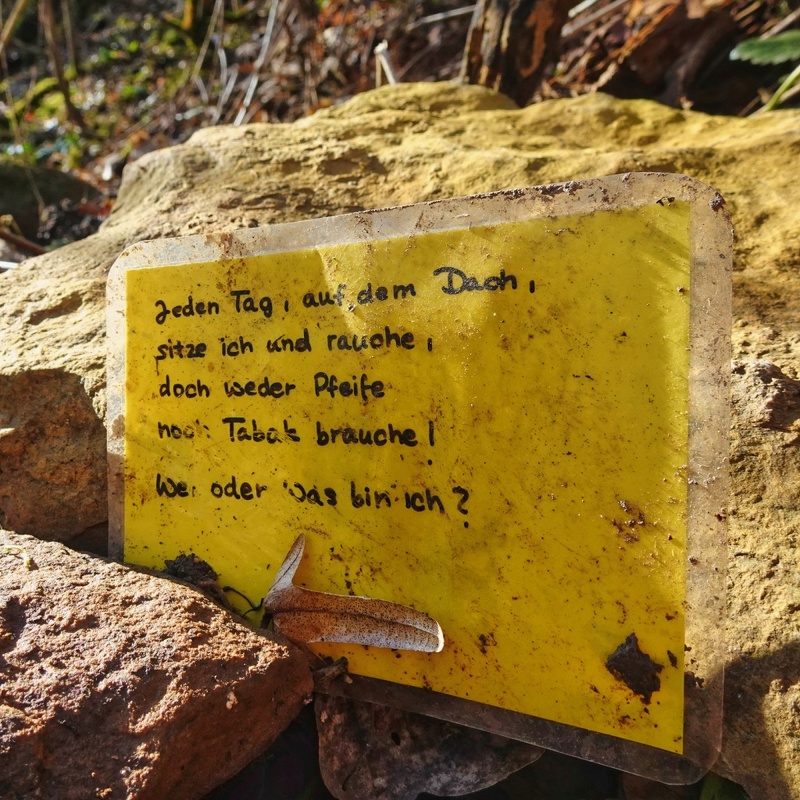 Jeden Tag, auf dem Dach,
sitze ich und rauche,
doch weder Pfeife
noch Tabak brauche!
Wer oder Was bin ich?